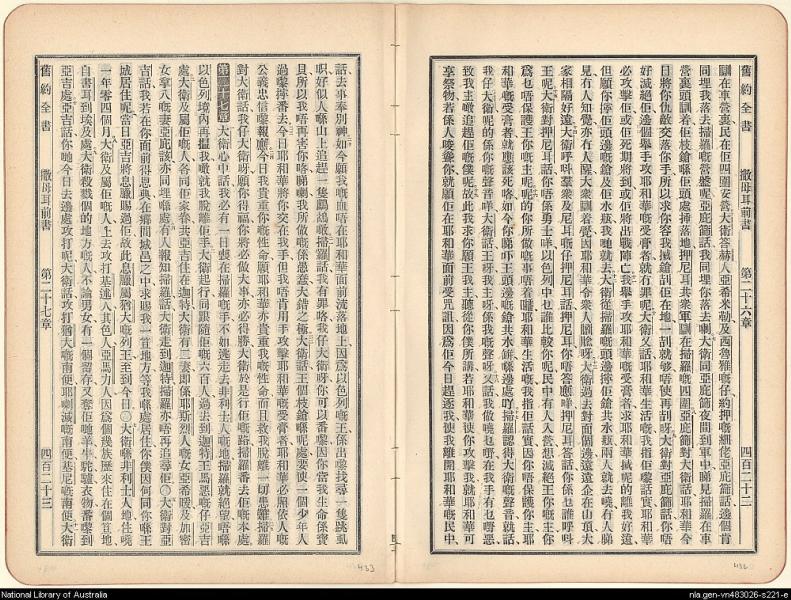 舊約全書 撒母耳前書 第二十六章 四百二十二
瞓在車營裏民在佢四圍安營大衛答赫人亞希米勒及西魯雅嘅仔約押嘅細佬亞庇篩話邊個肯
同埋我落去掃羅嘅營盤呢亞庇篩話我同埋你落去喇大衛同亞庇篩夜間到軍中睇見掃羅在車
營裏頭瞓着佢枝鎗喺佢頭處揷落地押尼耳共衆軍瞓在掃羅嘅四圍亞庇篩對大衛話耶和華今
日將你仇敵交落你手所以求你容我搣鎗刮佢在地一刮就够唔使再刮呀大衛對亞庇篩話你唔
好滅絕佢邊個舉手攻耶和華嘅受膏者就冇罪呢大衛又話耶和華生活嘅我指佢嚟話實耶和華
必攻擊佢或佢死期將到或佢將出戰陣亡我舉手攻耶和華嘅受膏者求耶和華搣呢的離我好遠
但願你搣佢頭邊嘅鎗及佢水瓶我哋就去大衛從掃羅嘅頭邊搣佢鎗共水瓶兩人就去嘵冇人睇
見冇人知覺亦冇人醒大衆瞓着覺因耶和華令衆人瞓啱呀大衛過去對面個邊遠遠企在山頂大
家相隔好遠大衛呼呌羣衆及尼耳嘅仔押尼耳話押尼耳你唔答應咩押尼耳答話你係乜誰呼呌
王呢大衛對押尼耳話你唔係勇士咩以色列中乜誰比較你呢民中有人入營想滅絕王你嘅主你
爲乜唔保護王你嘅主呢呢的你所做嘅事唔着囉耶和華生活嘅我指佢話實因你唔保護你主耶
和華嘅受膏者就應該死咯如今你睇吓王頭邊嘅鎗共水餅喺邊處咧掃羅認得大衛嘅聲音就話
我仔大衛呢的係你嘅聲音咩大衛話王呀我主呀係我嘅聲呀又話我做嘵乜嘢在我手有乜嘢惡
致我主噉追趕佢嘅僕呢故此我求你願王我主聽從你僕所講若耶和華使你攻擊我就耶和華可
享祭物若係人唆聳你就願佢在耶和華面前受咒詛因爲佢今日趕逐我使我離開耶和華嘅民中
舊約全書 撒母耳前書 第二十七章 四百二十三
話去事奉別神如今願我嘅血唔在耶和華面前流落地上因爲以色列嘅王係出嚟找尋一隻跳虱
呮好似人喺山上追趕一隻鷓鴣噉掃羅話我有罪咯我仔大衛呀你可以番嚟因你當我生命係寶
貝所以我唔再害你咯睇喇我所做嘅係愚蠢大錯之極大衛話王個枝鎗喺呢處要使一個少年人
過嚟搣番去今日耶和華將你交在我手但我唔肯用手攻擊耶和華嘅受膏者耶和華必照依人嘅
公義忠信嚟報應今日我貴重你嘅性命願耶和華亦貴重我嘅性命而且救我脫離一切患難掃羅
對大衛話我仔大衛呀願你得福你將必做大事亦必得勝大衛於是行佢嘅路掃羅番去佢嘅本處
第二十七章 大衛心中話我必有一日喪在掃羅嘅手不如逃走去非利士人嘅地掃羅就絕望唔喺
以色列境內再揾我噉就我脫離佢手大衛起行同跟隨佢嘅六百人過去到迦特王馬惡嘅仔亞吉
處大衛及屬佢嘅人各同佢家眷共亞吉住在迦特大衛有二妻即係耶斯烈人嘅女亞希暖及加密
女拿八嘅妻亞庇該亦同埋喺處有人報知掃羅話大衛走到迦特掃羅亦唔再追尋佢〇大衛對亞
吉話我若在你面前得恩典在鄉間城邑之中求賜我一笪地方等我喺處居住你僕因何同你喺王
城居住呢當日亞吉將息臘賜過佢故此息臘屬猶大嘅列王至到今日〇大衛喺非利士人地住嘵
一年零四個月大衛及屬佢嘅人上去攻打基述人其色人亞馬力人因爲個幾族歷來住在個笪地
自書耳到埃及處大衛殺戮個的地方嘅人不論男女冇一個留存又奪佢哋羊牛驢駱駝衣物番嚟到
亞吉處亞吉話你哋今日去邊處攻打呢大衛話攻打猶大嘅南便耶喇滅嘅南便基尼嘅南便大衛
433
432
National Library of Australia
nla.gen-vn483026-s221-e